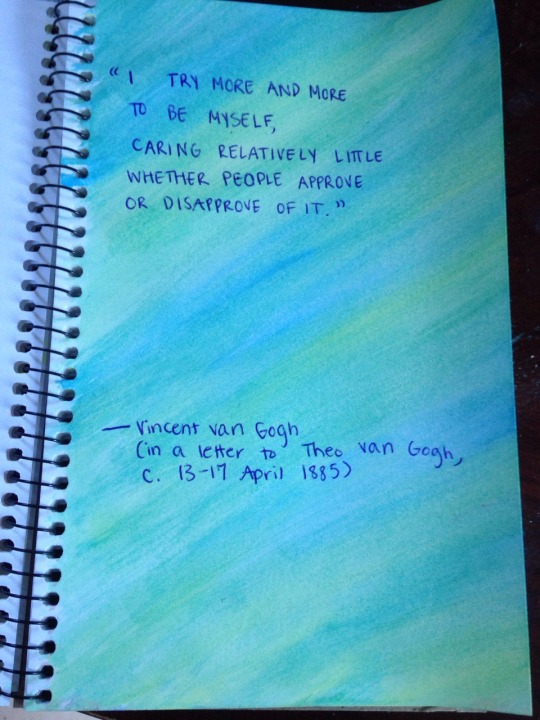 “ I TRY MORE AND MORE
TO BE MYSELF,
CARING RELATIVELY LITTLE
WHETHER PEOPLE APPROVE
OR DISAPPROVE OF IT.”
— Vincent van Gogh
(in a letter to Theo van Gogh,
c. 13-17 April 1885)